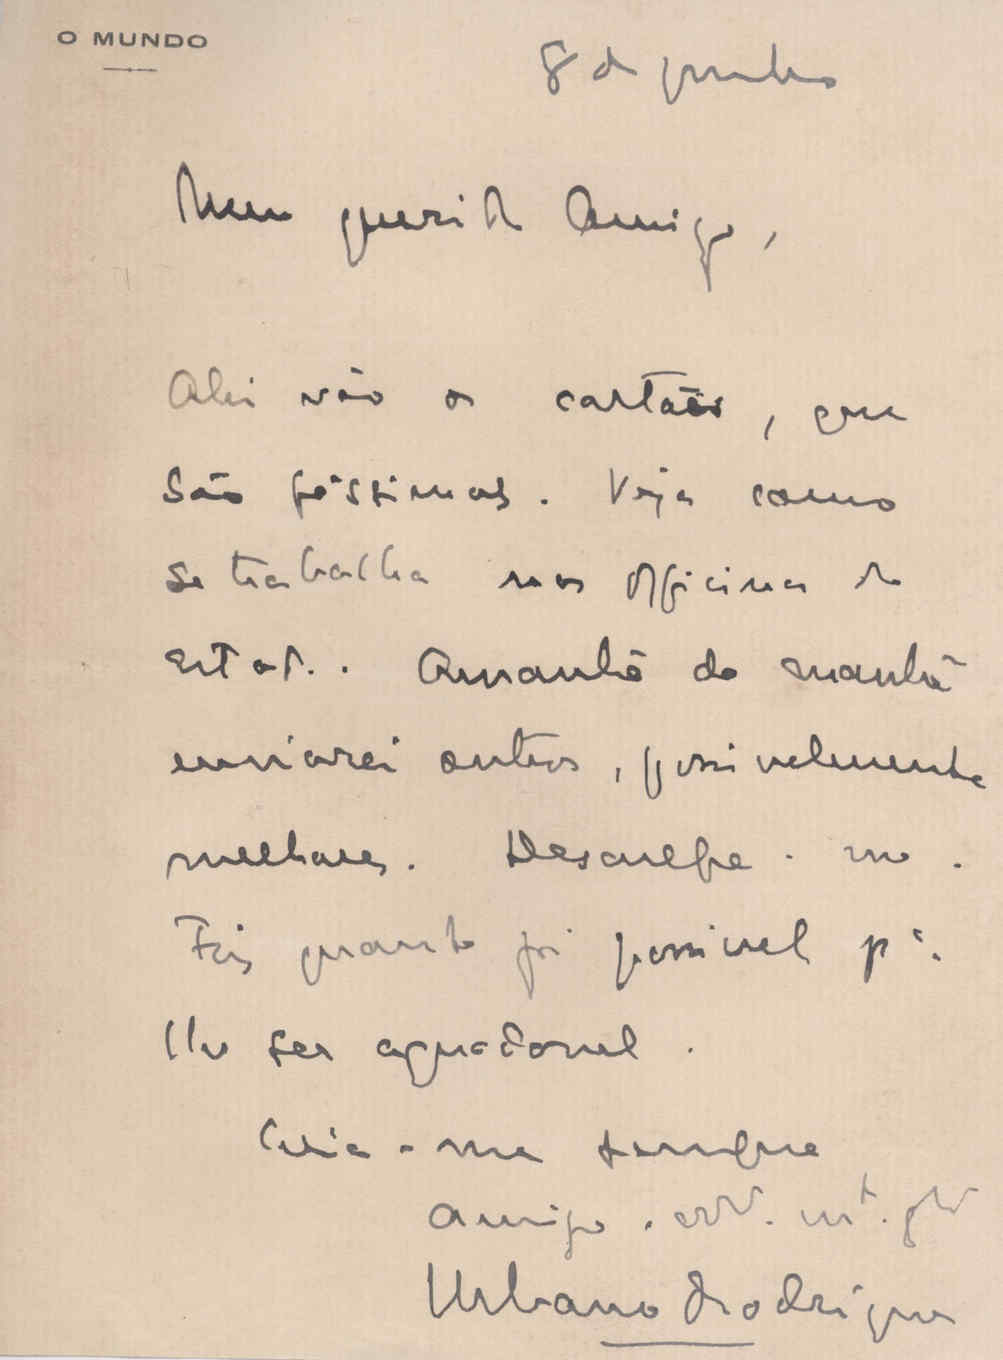 O MUNDO
8 de junho
Meu querido Amigo,
Ahi vão os cartões, que
são pessimos. Veja como
se trabalha nas officinas do
Estado. Amanhã de manhã
enviarei outros, possivelmente
melhores. Desculpe-me.
Fiz quanto foi possivel pª.
lhe ser agradavel.
Creia-me sempre
amigo. mt.
Urbano Rodrigues